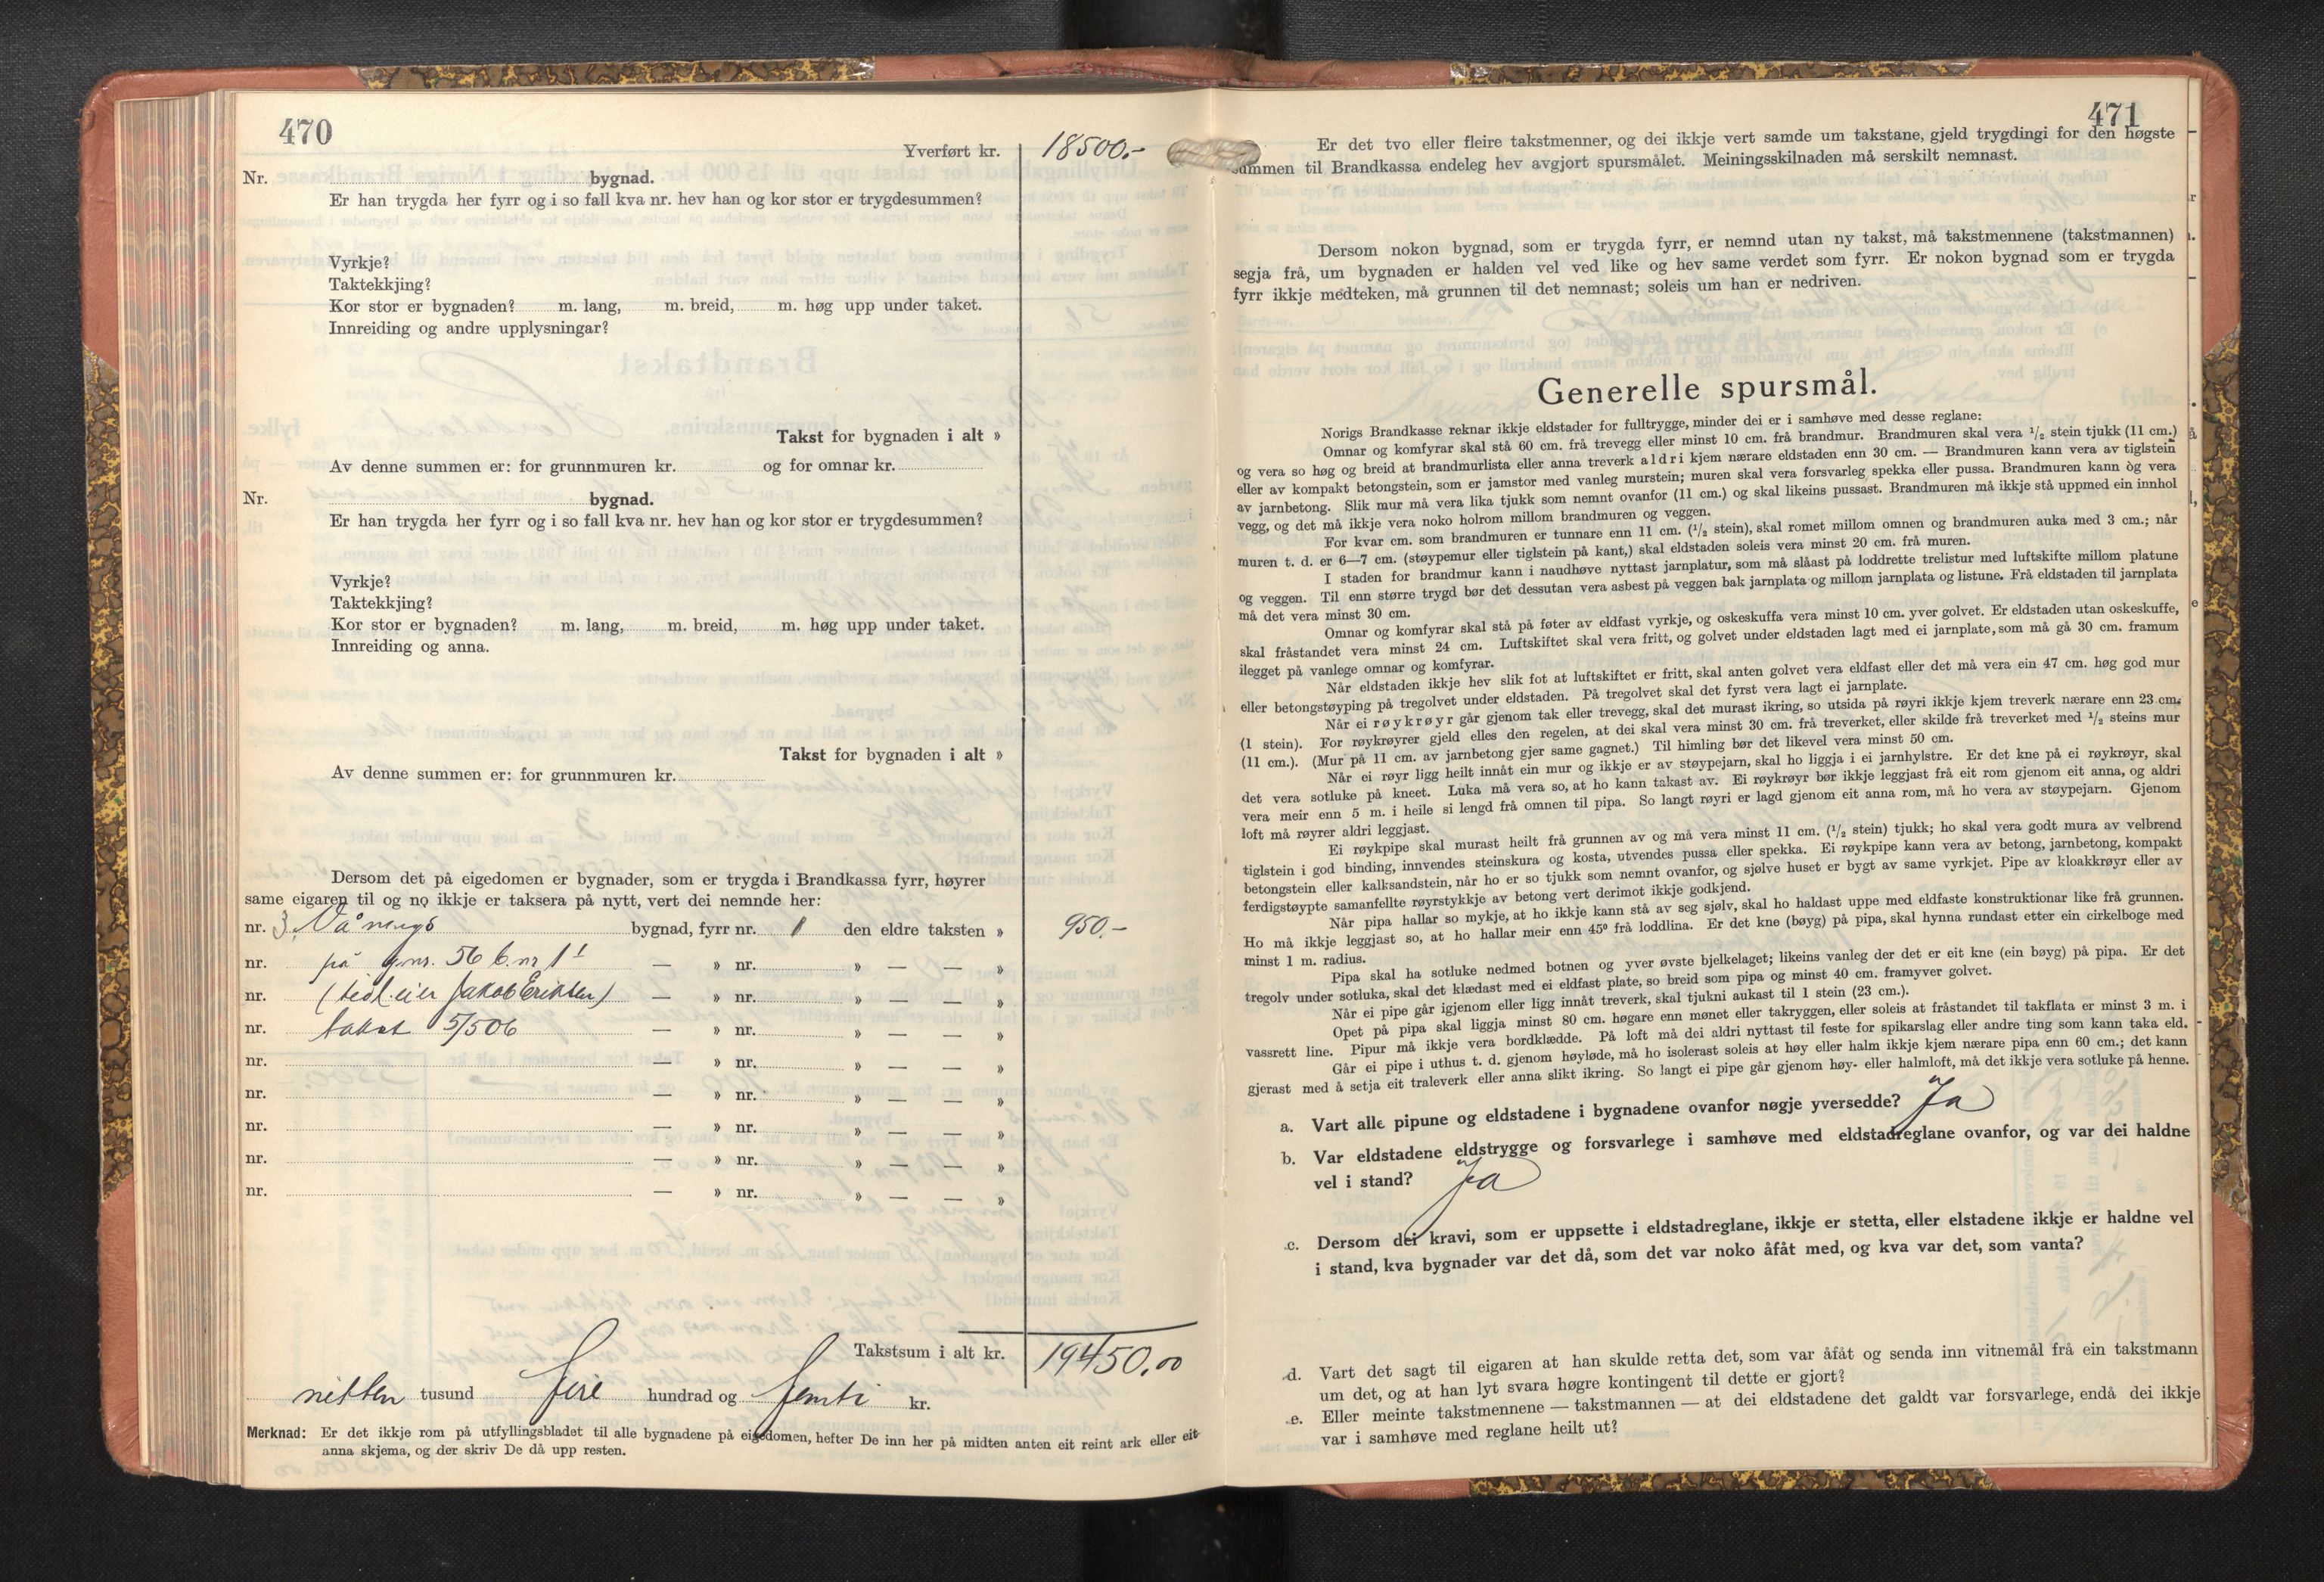 470
Yverført kr. 18500.-
Nr. bygnad.
Er han trygda her fyrr og i so fall kva nr. hev han og kor stor er trygdesummen?
Vyrkje?
Taktekkjing?
Kor stor er bygnaden? m. lang, m. breid, m. høg upp under taket.
Innreiding og andre upplysningar?
Takst for bygnaden i alt »
Av denne summen er: for grunnmuren kr. og for omnar kr.
Nr. bygnad.
Er han trygda her fyrr og i so fall kva nr. hev han og kor stor er trygdesummen?
Vyrkje?
Taktekkjing?
Kor stor er bygnaden? m. lang, m. breid, m. høg upp under taket.
Innreiding og anna.
Takst for bygnaden i alt »
Av denne summen er: for grunnmuren kr.
Dersom det på eigedomen er bygnader, som er trygda i Brandkassa fyrr, høyrer
same eigaren til og no ikkje er taksera på nytt, vert dei nemnde her:
nr. 3 Vånings bygnad, fyrr nr. 1 den eldre taksten » 950.-
nr. på g.nr. 56 b.nr 11 — » nr. » — — »
nr. (tidl. eier Jakob Eriksen) — » nr. » — — »
nr. takst 5/506 — » nr. » — — »
nr. — » nr. » — — »
nr. — » nr. » — — »
nr. — » nr. » — — »
nr. — » nr. » — — »
nr. — » nr. » — — »
Takstsum i alt kr. 19450.00
nitten tusund fire hundrad og femti kr.
Merknad: Er det ikkje rom på utfyllingsbladet til alle bygnadene på eigedomen, hefter De inn her på midten anten eit reint ark eller eit
anna skjema, og der skriv De då upp resten.
471
Er det tvo eller fleire takstmenner, og dei ikkje vert samde um takstane, gjeld trygdingi for den høgste
summen til Brandkassa endeleg hev avgjort spursmålet. Meiningsskilnaden må serskilt nemnast.
Dersom nokon bygnad, som er trygda fyrr, er nemnd utan ny takst, må takstmennene (takstmannen)
segja frå, um bygnaden er halden vel ved like og hev same verdet som fyrr. Er nokon bygnad som er trygda
fyrr ikkje medteken, må grunnen til det nemnast; soleis um han er nedriven.
Generelle spursmål.
Norigs Brandkasse reknar ikkje eldstader for fulltrygge, minder dei er i samhøve med desse reglane:
Omnar og komfyrar skal stå 60 cm. frå trevegg eller minst 10 cm. frå brandmur. Brandmuren skal vera 1/2 stein tjukk (11 cm.)
og vera so høg og breid at brandmurlista eller anna treverk aldri kjem nærare eldstaden enn 30 cm. — Brandmuren kann vera av tiglstein
eller av kompakt betongstein, som er jamstor med vanleg murstein; muren skal vera forsvarleg spekka eller pussa. Brandmuren kann òg vera
av jarnbetong. Slik mur må vera lika tjukk som nemnt ovanfor (11 cm.) og skal likeins pussast. Brandmuren må ikkje stå uppmed ein innhol
vegg, og det må ikkje vera noko holrom millom brandmuren og veggen.
For kvar cm. som brandmuren er tunnare enn 11 cm. (1/2 stein), skal romet millom omnen og brandmuren auka med 3 cm.; når
muren t. d. er 6—7 cm. (støypemur eller tiglstein på kant,) skal eldstaden soleis vera minst 20 cm. frå muren.
I staden for brandmur kann i naudhøve nyttast jarnplatur, som må slåast på loddrette trelistur med luftskifte millom platune
og veggen. Til enn større trygd bør det dessutan vera asbest på veggen bak jarnplata og millom jarnplata og listune. Frå eldstaden til jarnplata
må det vera minst 30 cm.
Omnar og komfyrar skal stå på føter av eldfast vyrkje, og oskeskuffa vera minst 10 cm. yver golvet. Er eldstaden utan oskeskuffe,
skal fråstandet vera minst 24 cm. Luftskiftet skal vera fritt, og golvet under eldstaden lagt med ei jarnplate, som må gå 30 cm. framum
ilegget på vanlege omnar og komfyrar.
Når eldstaden ikkje hev slik fot at luftskiftet er fritt, skal anten golvet vera eldfast eller det må vera ein 47 cm. høg god mur
eller betongstøyping på tregolvet under eldstaden. På tregolvet skal det fyrst vera lagt ei jarnplate.
Når ei røykrøyr går gjenom tak eller trevegg, skal det murast ikring, so utsida på røyri ikkje kjem treverk nærare enn 23 cm.
(1 stein). For røykrøyrer gjeld elles den regelen, at dei skal vera minst 30 cm. frå treverket, eller skilde frå treverket med 1/2 steins mur
(11 cm.). (Mur på 11 cm. av jarnbetong gjer same gagnet.) Til himling bør det likevel vera minst 50 cm.
Når ei røyr ligg heilt innåt ein mur og ikkje er av støypejarn, skal ho liggja i ei jarnhylstre. Er det kne på ei røykrøyr, skal
det vera sotluke på kneet. Luka må vera so, at ho kann takast av. Ei røykrøyr bør ikkje leggjast frå eit rom gjenom eit anna, og aldri
vera meir enn 5 m. i heile si lengd frå omnen til pipa. So langt røyri er lagd gjenom eit anna rom, må ho vera av støypejarn. Gjenom
loft må røyrer aldri leggjast.
Ei røykpipe skal murast heilt frå grunnen av og må vera minst 11 cm. (1/2 stein) tjukk; ho skal vera godt mura av velbrend
tiglstein i god binding, innvendes steinskura og kosta, utvendes pussa eller spekka. Ei røykpipe kann vera av betong, jarnbetong, kompakt
betongstein eller kalksandstein, når ho er so tjukk som nemnt ovanfor, og sjølve huset er bygt av same vyrkjet. Pipe av kloakkrøyr eller av
ferdigstøypte samanfellte røyrstykkje av betong vert derimot ikkje godkjend.
Når pipa hallar so mykje, at ho ikkje kann stå av seg sjølv, skal ho haldast uppe med eldfaste konstruktionar like frå grunnen.
Ho må ikkje leggjast so, at ho hallar meir enn 45º frå loddlina. Er det kne (bøyg) på pipa, skal hynna rundast etter ein cirkelboge med
minst 1 m. radius.
Pipa skal ha sotluke nedmed botnen og yver øvste bjelkelaget; likeins vanleg der det er eit kne (ein bøyg) på pipa. Er det
tregolv under sotluka, skal det klædast med ei eldfast plate, so breid som pipa og minst 40 cm. framyver golvet.
Når ei pipe går igjenom eller ligg innåt treverk, skal tjukni aukast til 1 stein (23 cm.).
Opet på pipa skal liggja minst 80 cm. høgare enn mønet eller takryggen, eller soleis at fråstandet til takflata er minst 3 m. i
vassrett line. Pipur må ikkje vera bordklædde. På loft må dei aldri nyttast til feste for spikarslag eller andre ting som kann taka eld.
Går ei pipe i uthus t. d. gjenom høyløde, må ho isolerast soleis at høy eller halm ikkje kjem nærare pipa enn 60 cm.; det kann
gjerast med å setja eit traleverk eller anna slikt ikring. So langt ei pipe går gjenom høy- eller halmloft, må det ikkje vera sotluke på henne.
a. Vart alle pipune og eldstadene i bygnadene ovanfor nøgje yversedde? Ja
b. Var eldstadene eldstrygge og forsvarlege i samhøve med eldstadreglane ovanfor, og var dei haldne
vel i stand? Ja
c. Dersom dei kravi, som er uppsette i eldstadreglane, ikkje er stetta, eller elstadene ikkje er haldne vel
i stand, kva bygnader var det då, som det var noko åfåt med, og kva var det, som vanta?
d. Vart det sagt til eigaren at han skulde retta det, som var åfåt og senda inn vitnemål frå ein takstmann
um det, og at han lyt svara høgre kontingent til dette er gjort?
e. Eller meinte takstmennene — takstmannen — at dei eldstadene det galdt var forsvarlege, endå dei ikkje
var i samhøve med reglane heilt ut?